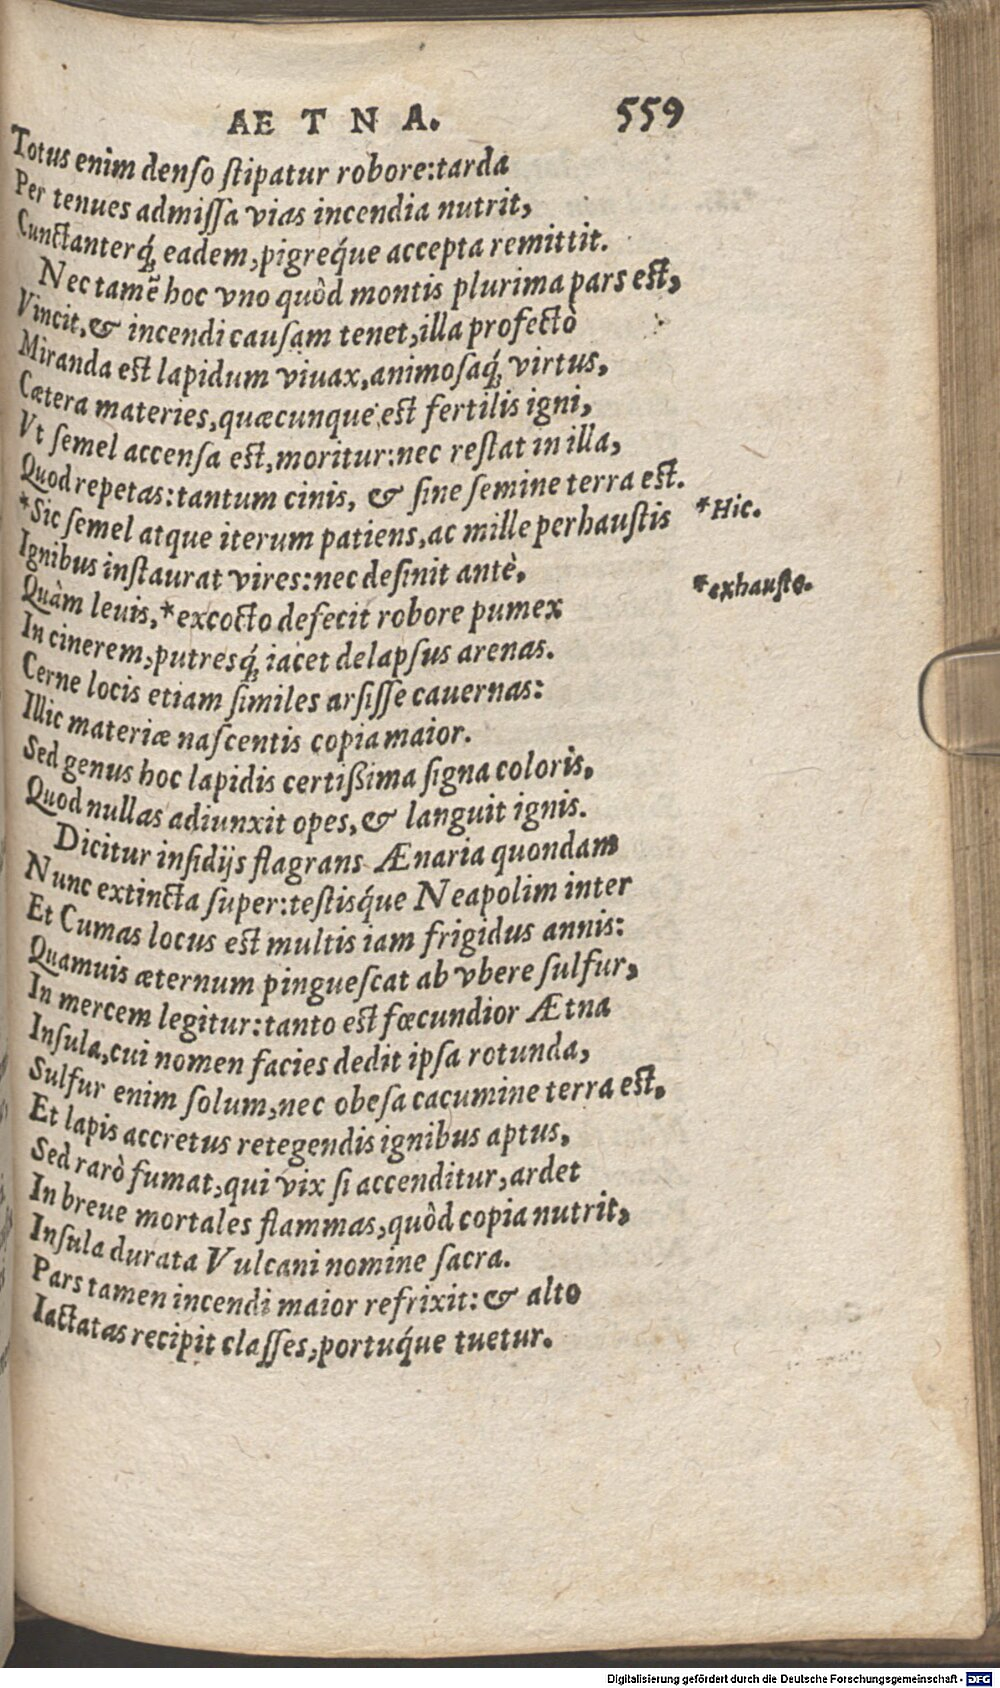 AETNA. 559
Totus enim denſo ſtipatur robore:tarda
Per tenues admiſſa vias incendia nutrit,
Cunctanterq́; eadem,pigreq́ue accepta remittit.
Nec tamẽ hoc vno quòd montis plurima pars est,
Vincit,& incendi cauſam tenet,illa profectò
Miranda est lapidum viuax,animoſaq́; virtus,
Cætera materies,quæcunque est fertilis igni,
Vt ſemel accenſa est,moritur:nec reſtat in illa,
Quod repetas:tantum cinis, & ſine ſemine terra est.
*Sic ſemel atque iterum patiens,ac mille perhauſtis *Hic.
Ignibus inſtaurat vires:nec deſinit antè,
Quàm leuis,*excocto defecit robore pumex *exhauſto.
In cinerem,putresq́; iacet delapſus arenas.
Cerne locis etiam ſimiles arſiſſe cauernas:
Illic materiæ naſcentis copia maior.
Sed genus hoc lapidis certißima ſigna coloris,
Quod nullas adiunxit opes,& languit ignis.
Dicitur inſidijs flagrans Ænaria quondam
Nunc extincta ſuper:teſtisq́ue Neapolim inter
Et Cumas locus est multis iam frigidus annis:
Quamuis æternum pingueſcat ab vbere ſulfur,
In mercem legitur:tanto est fœcundior Ætna
Inſula,cui nomen facies dedit ipſa rotunda,
Sulfur enim ſolum,nec obeſa cacumine terra est,
Et lapis accretus retegendis ignibus aptus,
Sed rarò fumat,qui vix ſi accenditur,ardet
In breue mortales flammas,quòd copia nutrit,
Inſula durata Vulcani nomine ſacra.
Pars tamen incendi maior refrixit:& alto
Iactatas recipit claſſes,portuq́ue tuetur.
Digitalisierung gefördert durch die Deutsche Forschungsgemeinschaft - DFG